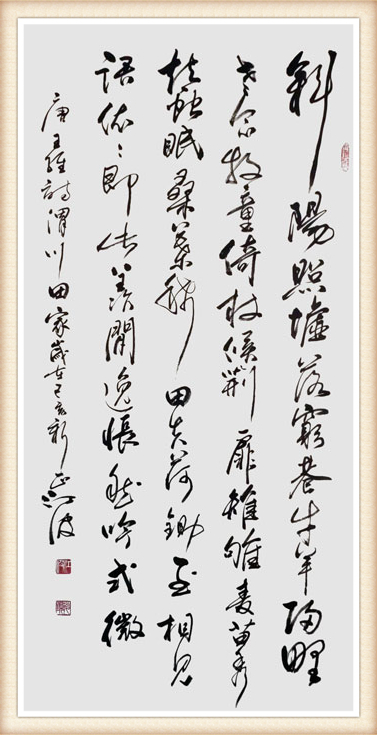 斜陽照墟落窮巷牛羊歸野
老念牧童倚杖候荊扉雉雊麥苗秀
蠶眠桑葉稀田夫荷鋤至相見
語依依即此羨閒逸悵然吟式微
唐王維詩渭川田家歲在己亥新波